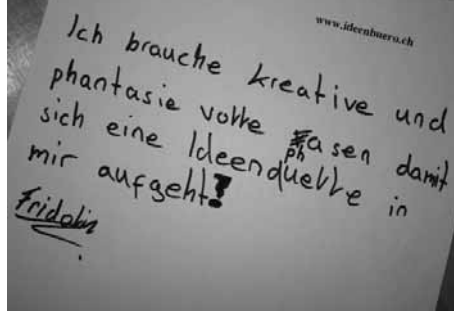 www.ideenbuero.ch
Ich brauche kreative und
phantasie volle phasen damit
sich eine Ideenquelle in
mir aufgeht!
Fridolin